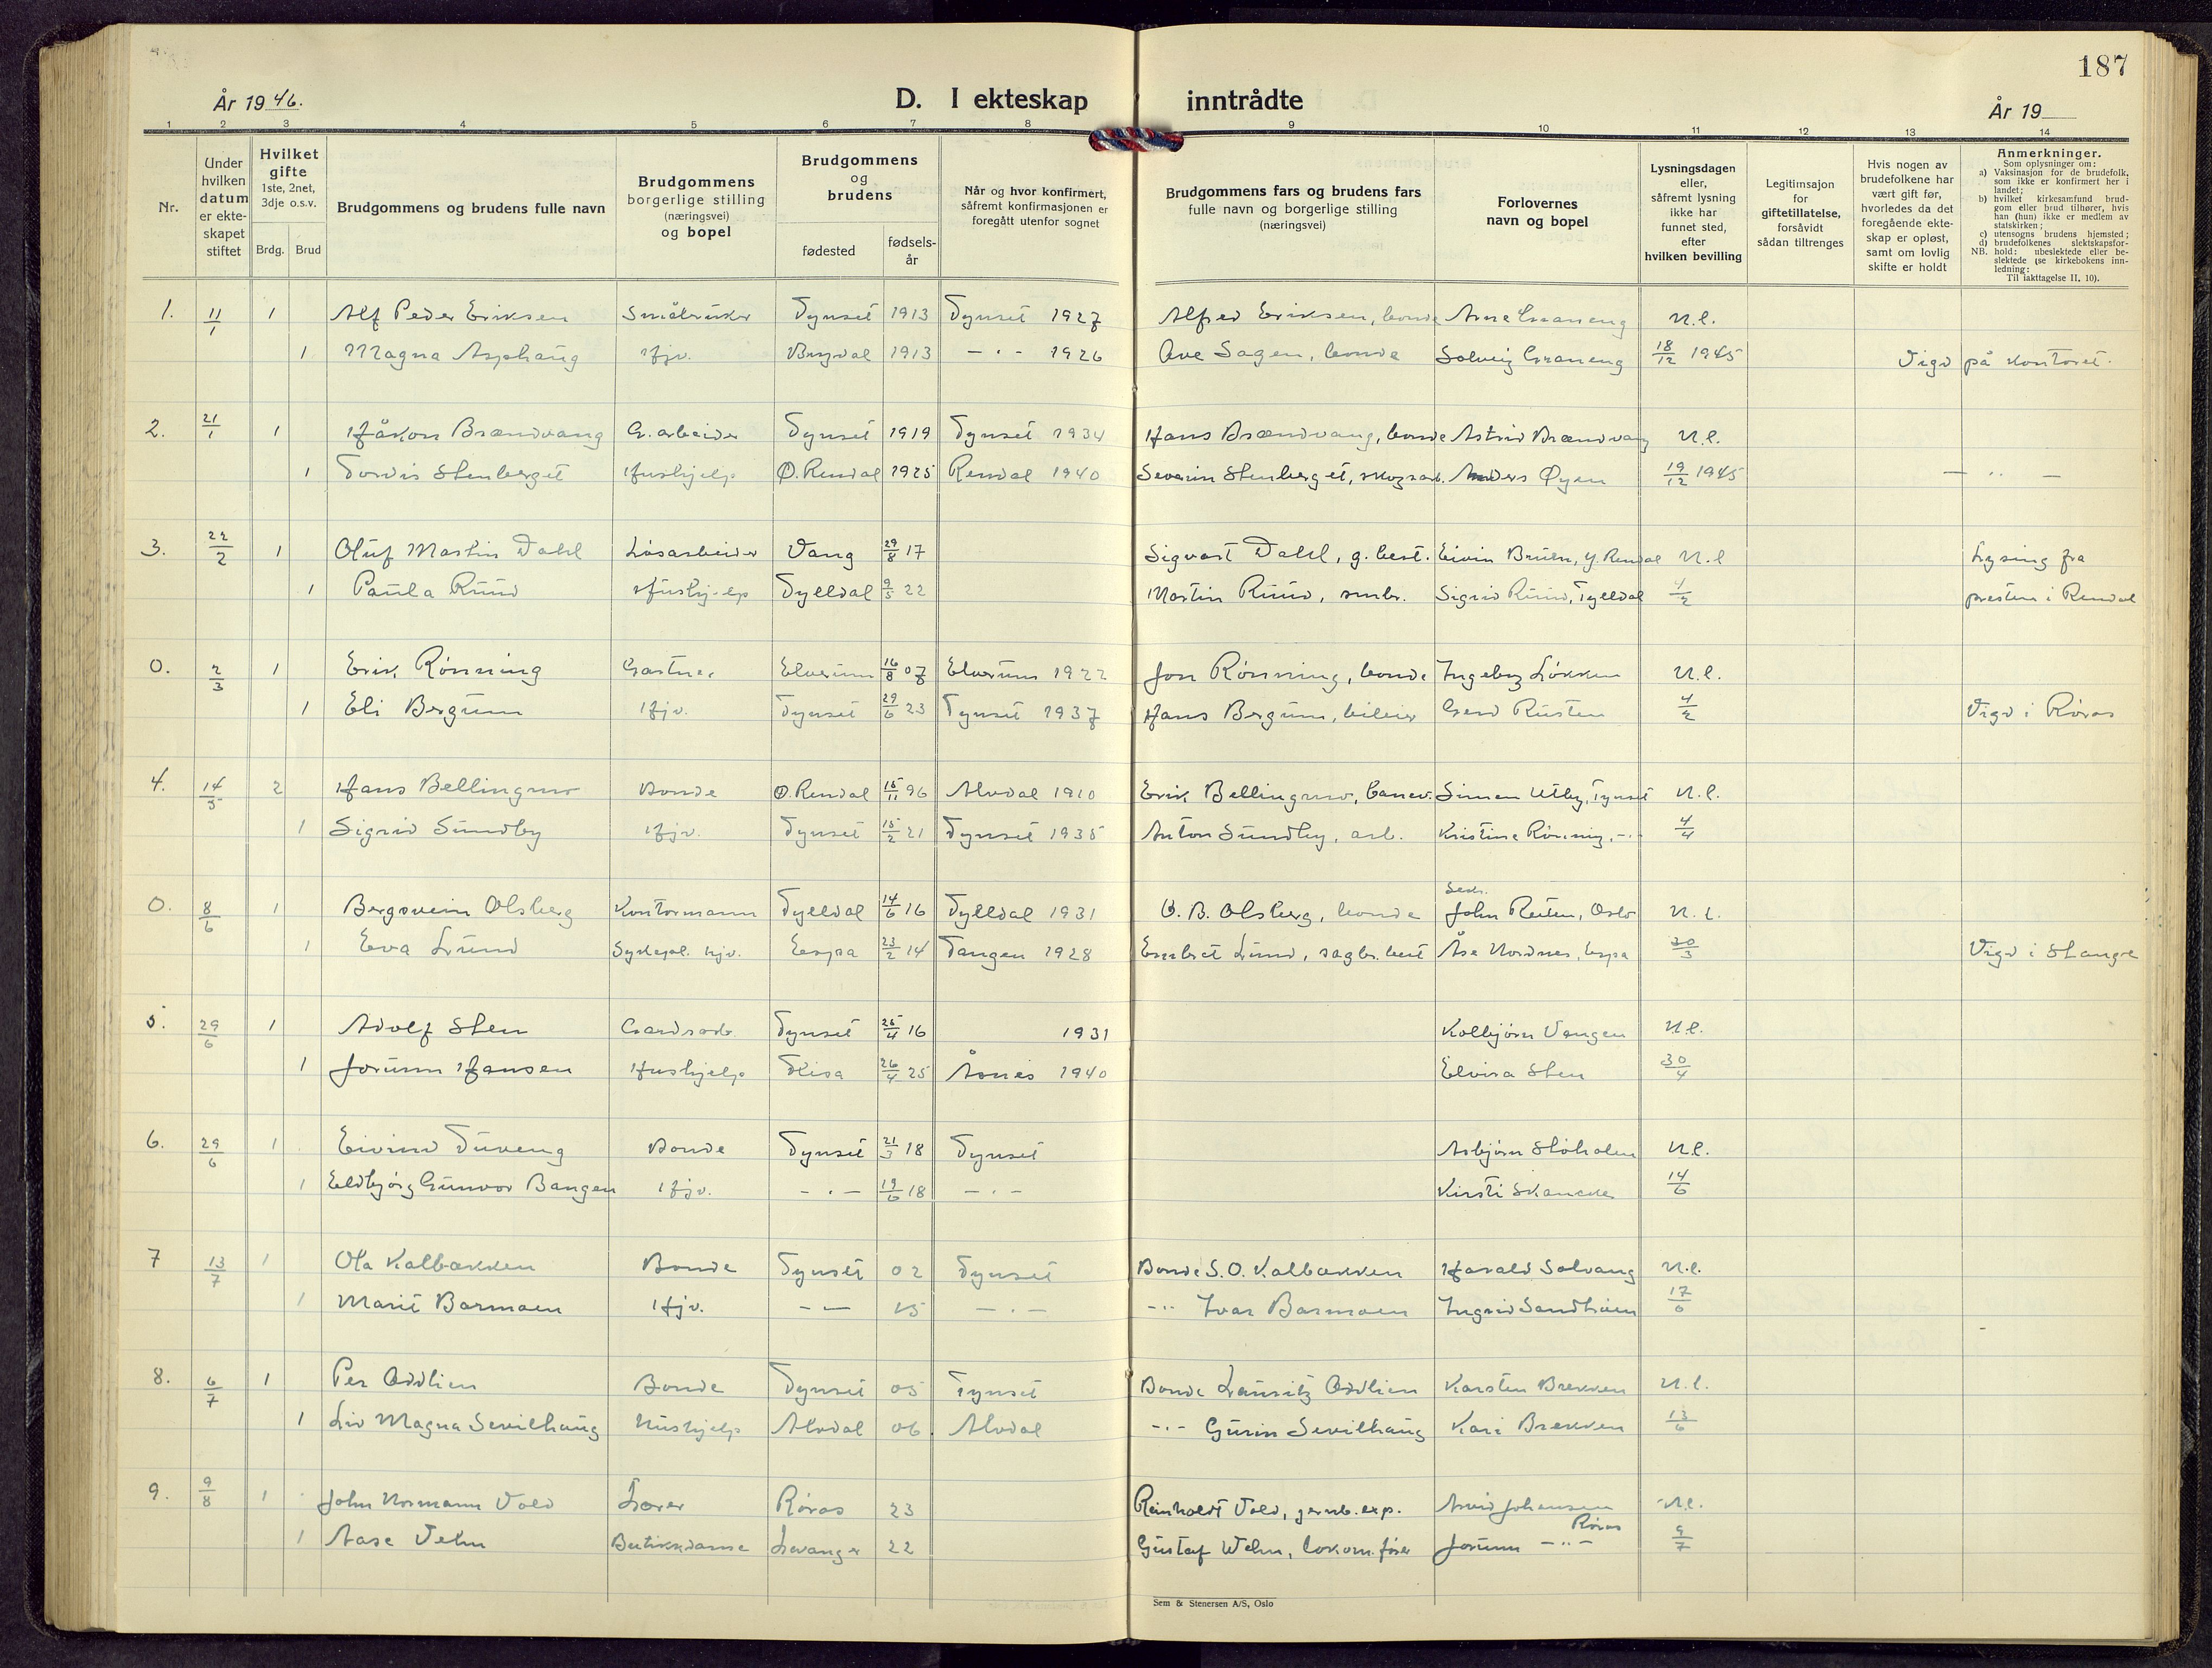 187
År 1946.
D. I ekteskap inntrådte
År 19
1 2 3 4 5 6 7 8 9 10 11 12 13 14
Nr.
Under hvilken datum er ekteskapet stiftet
Hvilket gifte 1ste, 2net, 3dje o.s.v.
Brdg. Brud
Brudgommens og brudens fulle navn
Brudgommens borgerlige stilling (næringsvei) og bopel
Brudgommens og brudens
fødested
fødselsår
Når og hvor konfirmert, såfremt konfirmasjonen er foregått utenfor sognet
Brudgommens fars og brudens fars fulle navn og borgerlige stilling (næringsvei)
Forlovernes navn og bopel
Lysningsdagen eller, såfremt lysning ikke har funnet sted, efter hvilken bevilling
Legitimsajon for giftetillatelse, forsåvidt sådan tiltrenges
Hvis nogen av brudefolkene har vært gift før, hvorledes da det foregående ekteskap er opløst, samt om lovlig skifte er holdt
Anmerkninger.
Som oplysninger om:
a) Vaksinasjon for de brudefolk, som ikke er konfirmert her i landet;
b) hvilket kirkesamfund brudgom eller brud tilhører, hvis han (hun) ikke er medlem av statskirken;
c) utensogns brudens hjemsted;
d) brudefolkenes slektskapsforhold: ubeslektede eller beslektede (se kirkebokens innledning:
NB. Til iakttagelse II, 10).
1. 11/1 1 Alf Peder Eriksen Småbruker Tynset 1913 Tynset 1927 Alfred Eriksen, bonde Arne Graneng N.l.
1 Magna Asphaug Hjv. 1913 — " — 1926 Ove Sagen, bonde Solveig Graneng 18/12 1945 Vigd på kontoret.
2. 21/1 1 Håkon Brændvang G.arbeider Tynset 1919 Tynset 1934 Hans Brændvang, bonde Astrid Brændvang N.l.
1 Tordis Stenberget Hushjelp Ø. Rendal 1925 Rendal 1940 Severin Stenberget, skogsarb. Anders Øyen 19/12 1945 — " —
3. 22/2 1 Oluf Martin Dahl Løsarbeider Vang 29/8 17 Sigvart Dahl, g. best. Eivin Bruen, Y. Rendal N.l
1 Paula Ruud Hushjelp Tylldal 9/5 22 Martin Ruud, smbr. Sigrid Ruud, Tylldal 1/2
Lysing fra
presten i Rendal
0. 2/3 1 Erik Rønning Gartner Elverum 16/8 07 Elverum 1922 Jon Rønning, bonde Ingebrg Løkken N.l.
1 Eli Bergum Hjv. Tynset 29/6 23 Tynset 1937 Hans Bergum, bileier Gerd Rusten 4/2 Vigd i Røros
4. 14/5 2 Hans Bellingmo Bonde Ø. Rendal 15/11 96 Alvdal 1910 Erik Bellingmo, Simen Utby, Tynset N.l.
1 Sigrid Sundby Hjv. Tynset 15/2 21 Tynset 1935 Anton Sundby, arb. Kristine Rønning, — " — 4/4
0. 8/6 1 Bergsvein Olsberg Kontormann Tylldal 14/6 16 Tylldal 1931 O. B. Olsberg, bonde Sekr. John Reiten, Oslo N.l.
1 Eva Lund Sykepl. hjv. Espa 23/2 14 Tangen 1928 Embret Lund, sagbr. best Åse Nordnes, Espa 30/3 Vigd i Stange
5. 29/6 1 Adolf Sten Gardsarb. Tynset 25/4 16 1931 Kolbjørn Vangen N.l.
1 Jorunn Hansen Hushjelp Flisa 26/4 25 Åsnes 1940 Elvira Sten 30/4
6. 29/6 1 Eivind Tuveng Bonde Tynset 21/3 18 Tynset Asbjørn Støholen N.l.
1 Eldbjørg Gunvor Bangen Hjv. — " — 19/6 18 — " — Kirsti Skancke 14/6
7 13/7 1 Ola Kalbækken Bonde Tynset 02 Tynset Bonde S.O. Kalbækken Harald Solvang N.l.
1 Marit Barmoen Hjv. — — 15 — " — — " — Ivar Barmoen 17/6
8. 6/7 1 Per Oddlien Bonde Tynset 05 Tynset Bonde Lauritz Oddlien Karsten Brekken N.l.
1 Liv Magna Sevilhaug Hushjelp Alvdal 06 Alvdal — " — Gurin Sevilhaug Kari Brekken 13/6
9. 9/8 1 John Normann Vold Lærer Røros 23 Reinholdt Vold, jernb. exp. Arvid Johansen Røros N.l.
1 Aase Velm Butikkdame Levanger 22 Gustaf Welm, lokom.fører Jorunn — " — 9/7
Sem & Stenersen A/S, Oslo